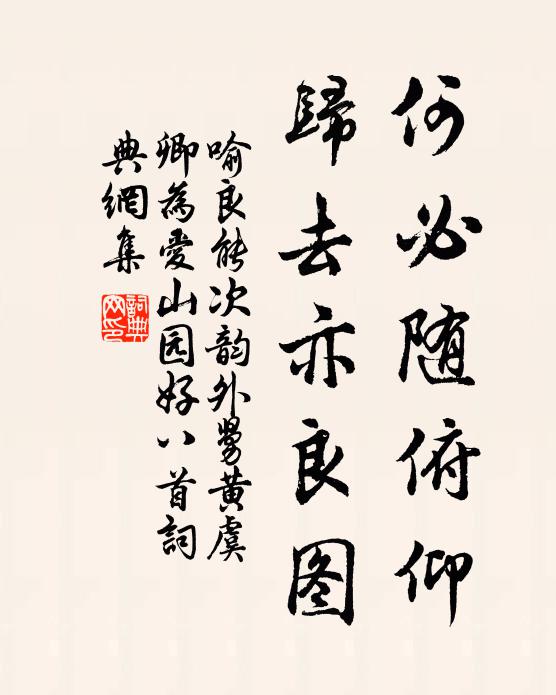 何必随俯仰
歸去亦良图
喻良能次韵外舅黄虞
卿為愛山园好八首詞
典網集
詞典网印